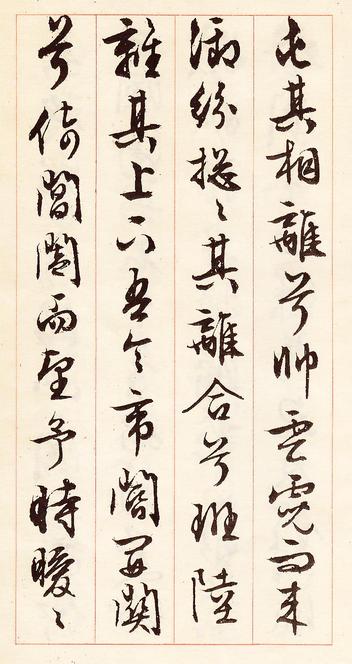 屯其相離兮帥雲霓而来
御紛揔〻其離合兮班陸
離其上下吾令帝閽開關
兮倚閶闔而望予時曖〻